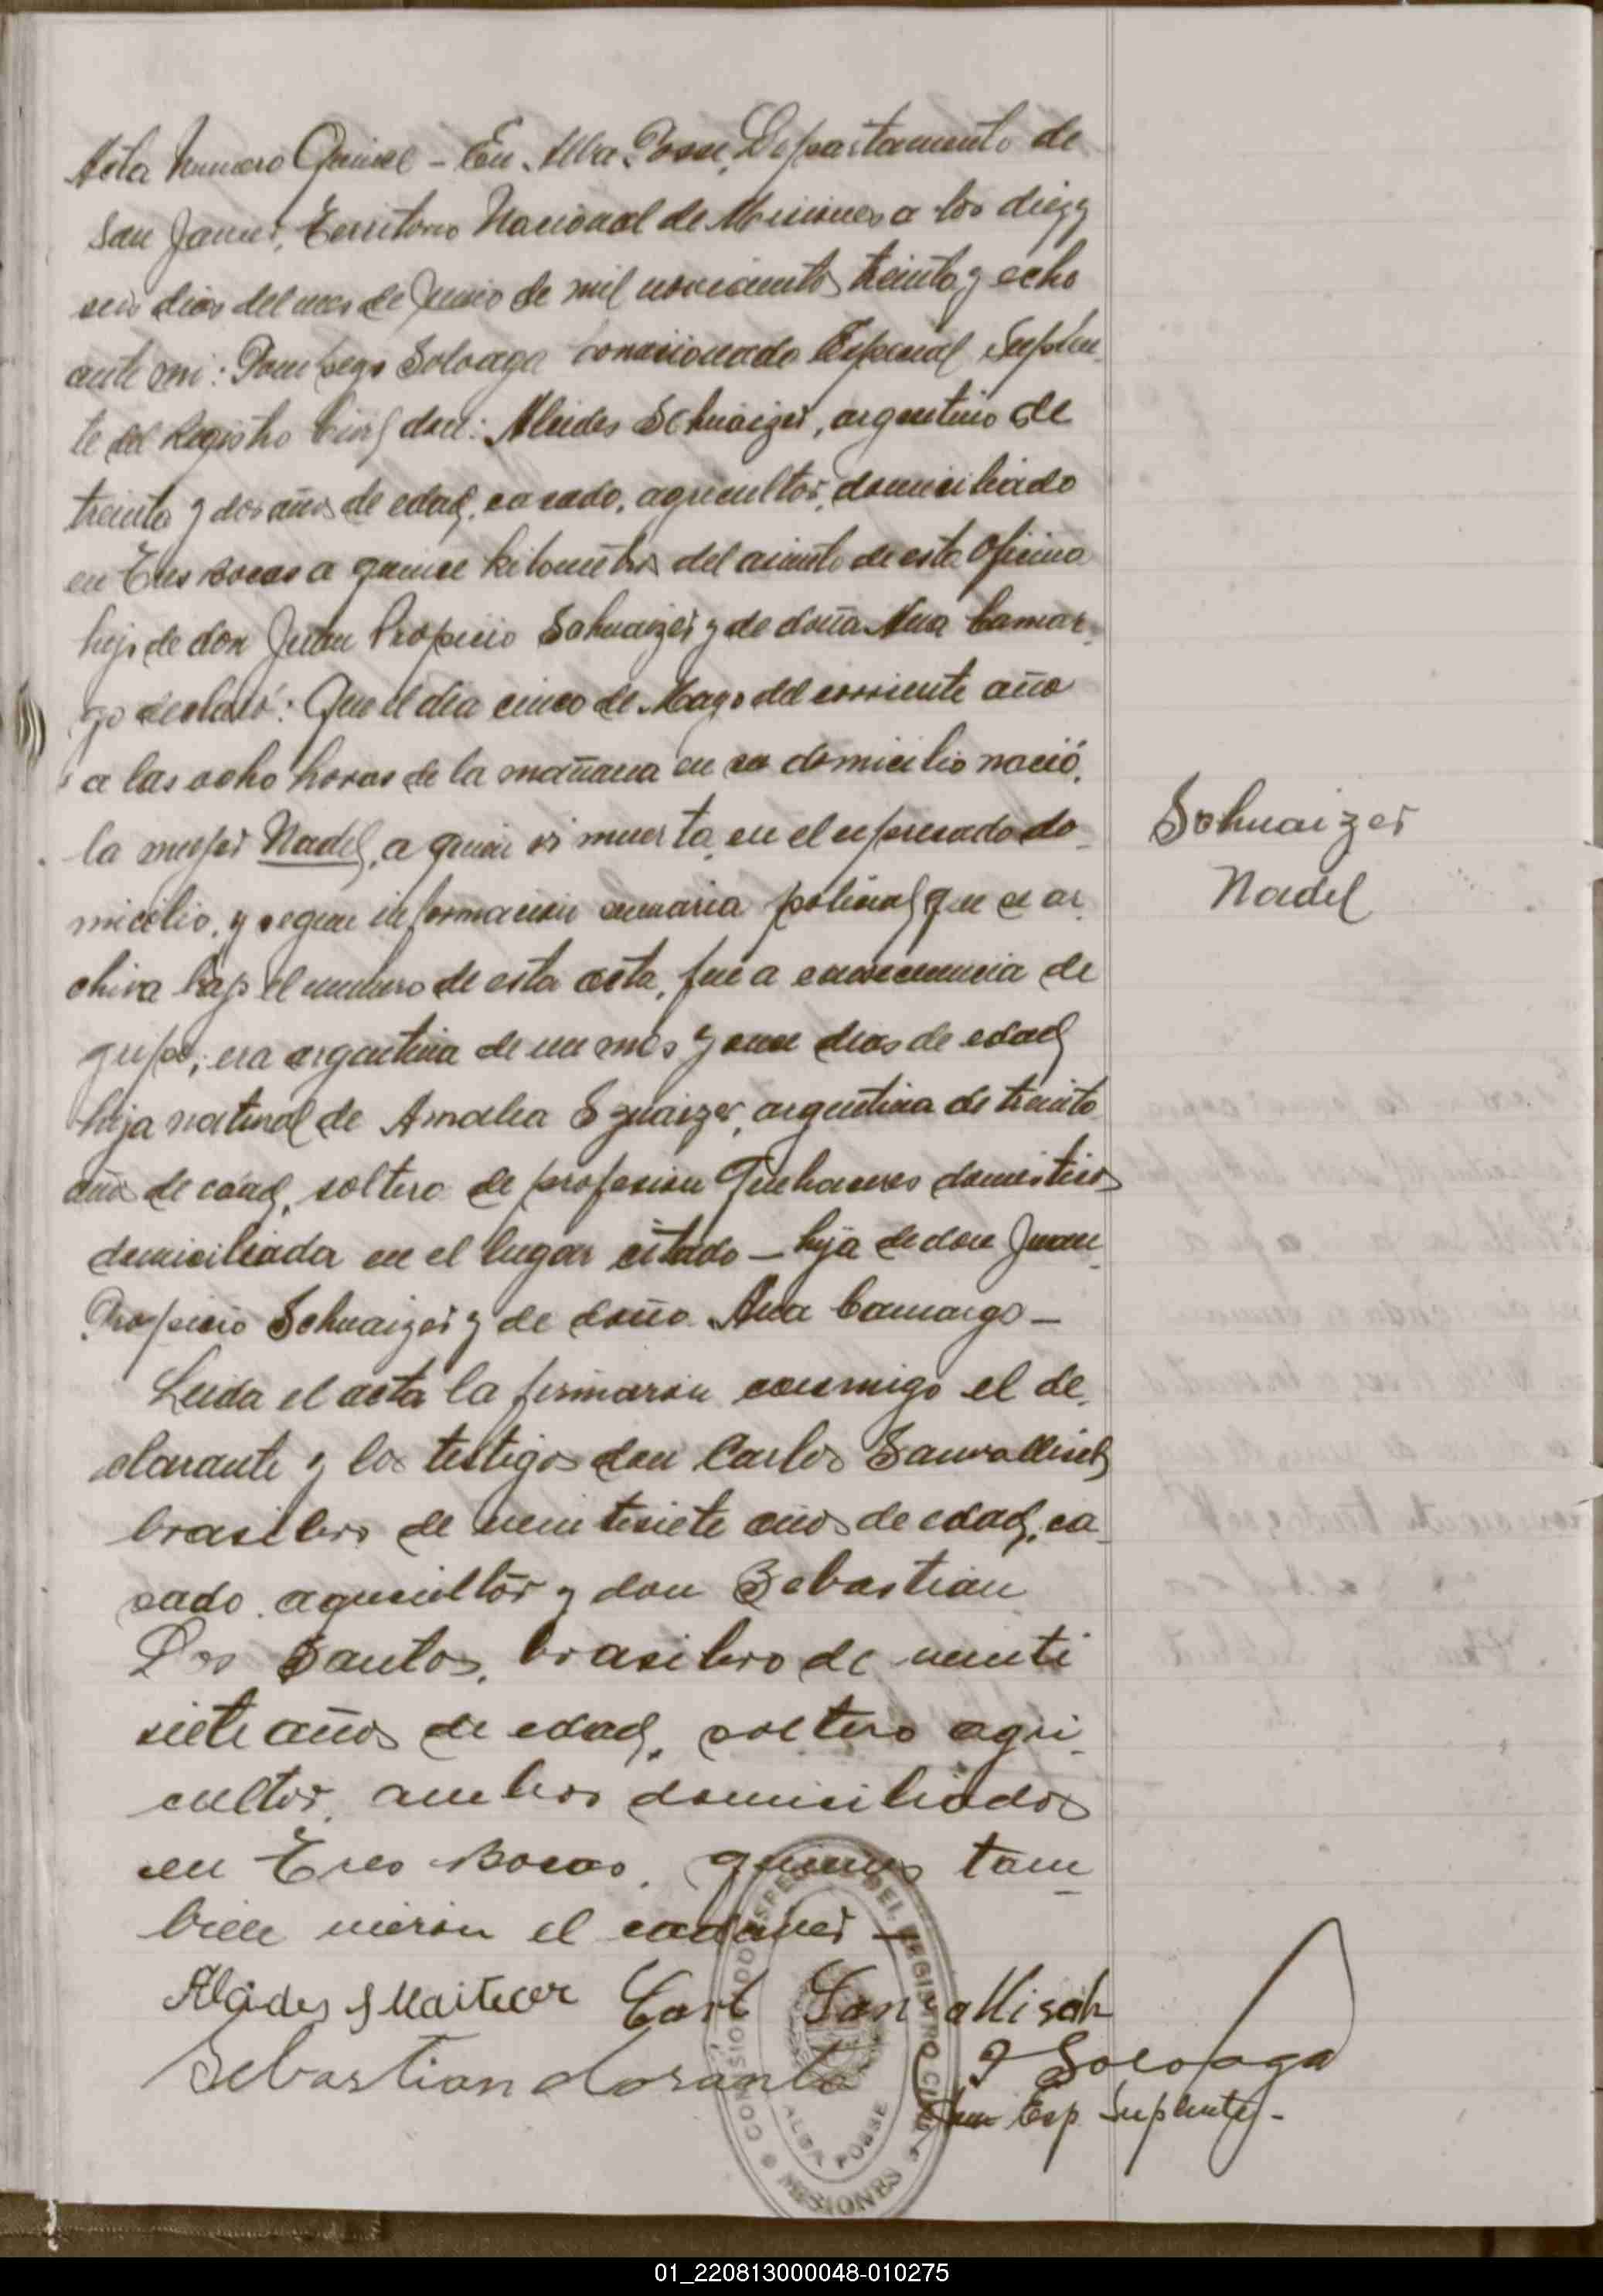 Acta Numero Quince - En Alba Posse, Departamento de
San Javier, Territorio Nacional de Misiones a los diez y
seis dias del mes de Junio de mil novecientos treinta y ocho
ante mi: Pompeyo Soloaga Comisionado Especial Suplen-
te del Registro Civil don: Alcides Schnaizer, argentino de
treinta y dos años de edad, casado, agricultor, domiciliado
en Tres Bocas a quince kilometros del asiento de esta Oficina
hijo de don Juan Propicio Schnaizer y de doña Ana Camar-
go declaró: Que el dia cinco de Mayo del corriente año
a las ocho horas de la mañana en su domicilio nació,
la mujer Nadel, a quien vi muerta, en el expresado do-
micilio, y segun informacion sumaria policial que se ar
chiva bajo el numero de esta acta, fue a consecuencia de
gripe; era argentina de un mes y once dias de edad
hija natural de Amalia Sznaizer, argentina de treinta
años de edad, soltera de profesion Quehaceres domesticos
domiciliada en el lugar citado - hija de don Juan
Propicio Schnaizer y de doña Ana Camargo -
Leida el acta la firmaron conmigo el de-
clarante y los testigos don Carlos Sanvallisch
brasilero de veintisiete años de edad, ca-
sado agricultor y don Sebastian
Dos Santos, brasilero de veinti
siete años de edad, soltero agri-
cultor, ambos domiciliados
en Tres Bocas, quienes tam-
bien vieron el cadaver -
Schnaizer
Nadel
Alcides Carl Sanvallisch
Sebastian dosanto
P Soloaga
Com Esp Suplente -
COMISIONADO ESPECIAL DEL REGISTRO CIVIL
ALBA POSSE
MISIONES
01_220813000048-010275